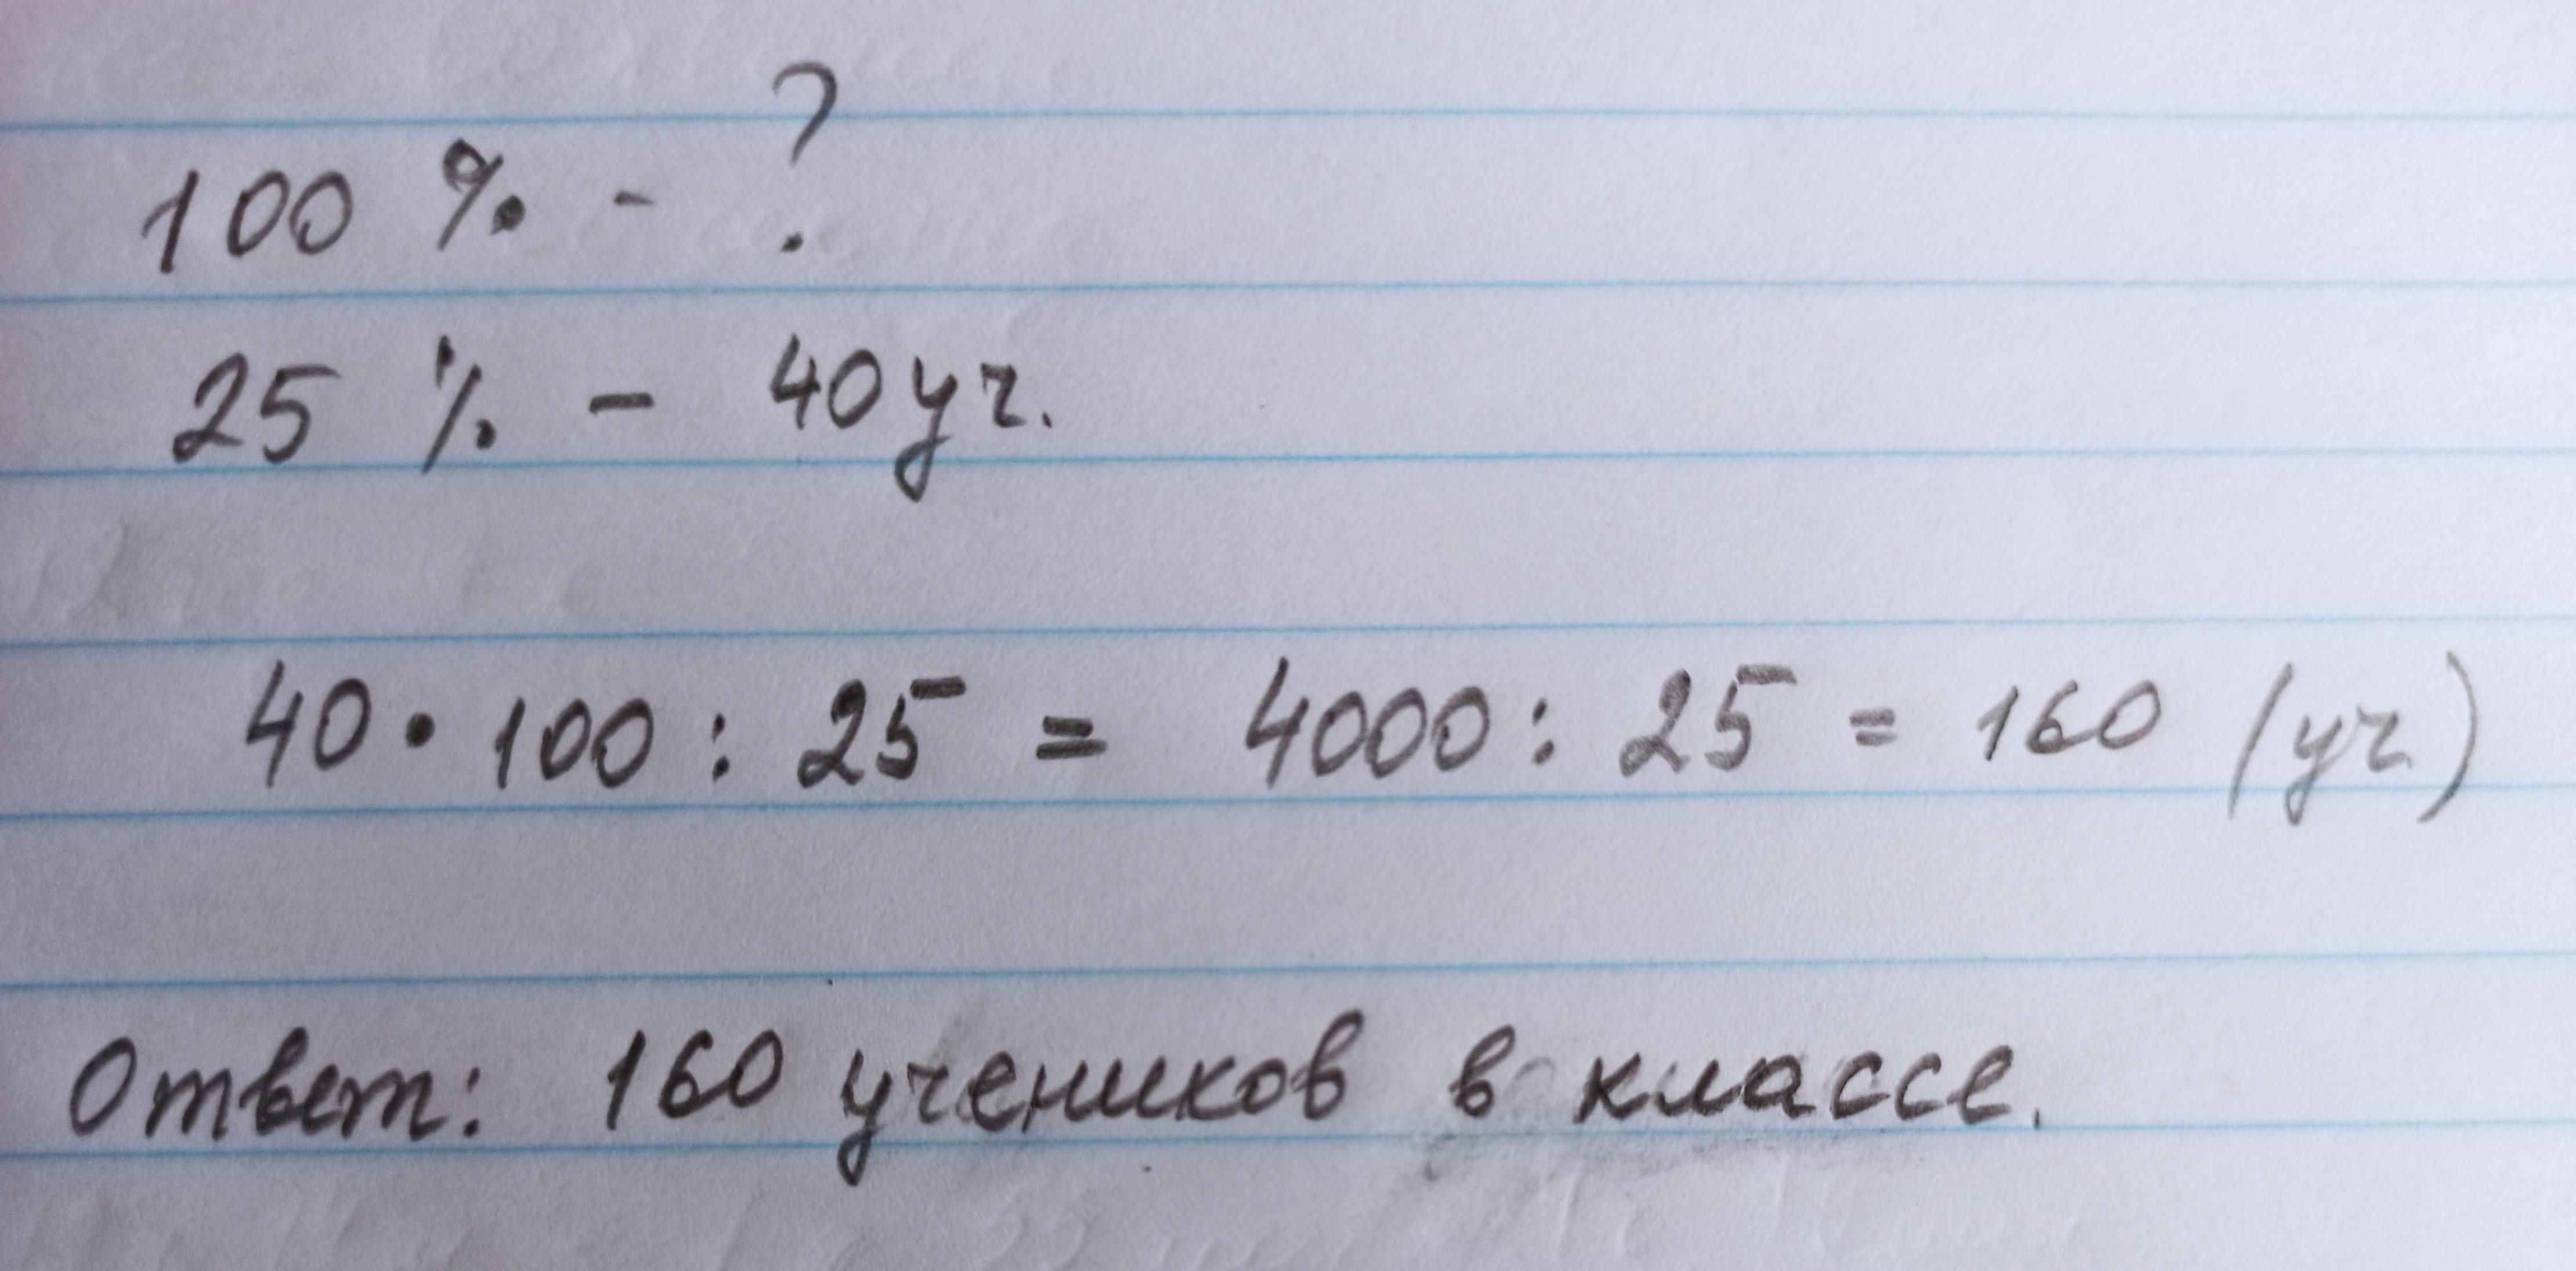 100 % - ?
25 % - 40 уч.
40 • 100 : 25 = 4000 : 25 = 160 (уч.)
Ответ: 160 учеников в классе.